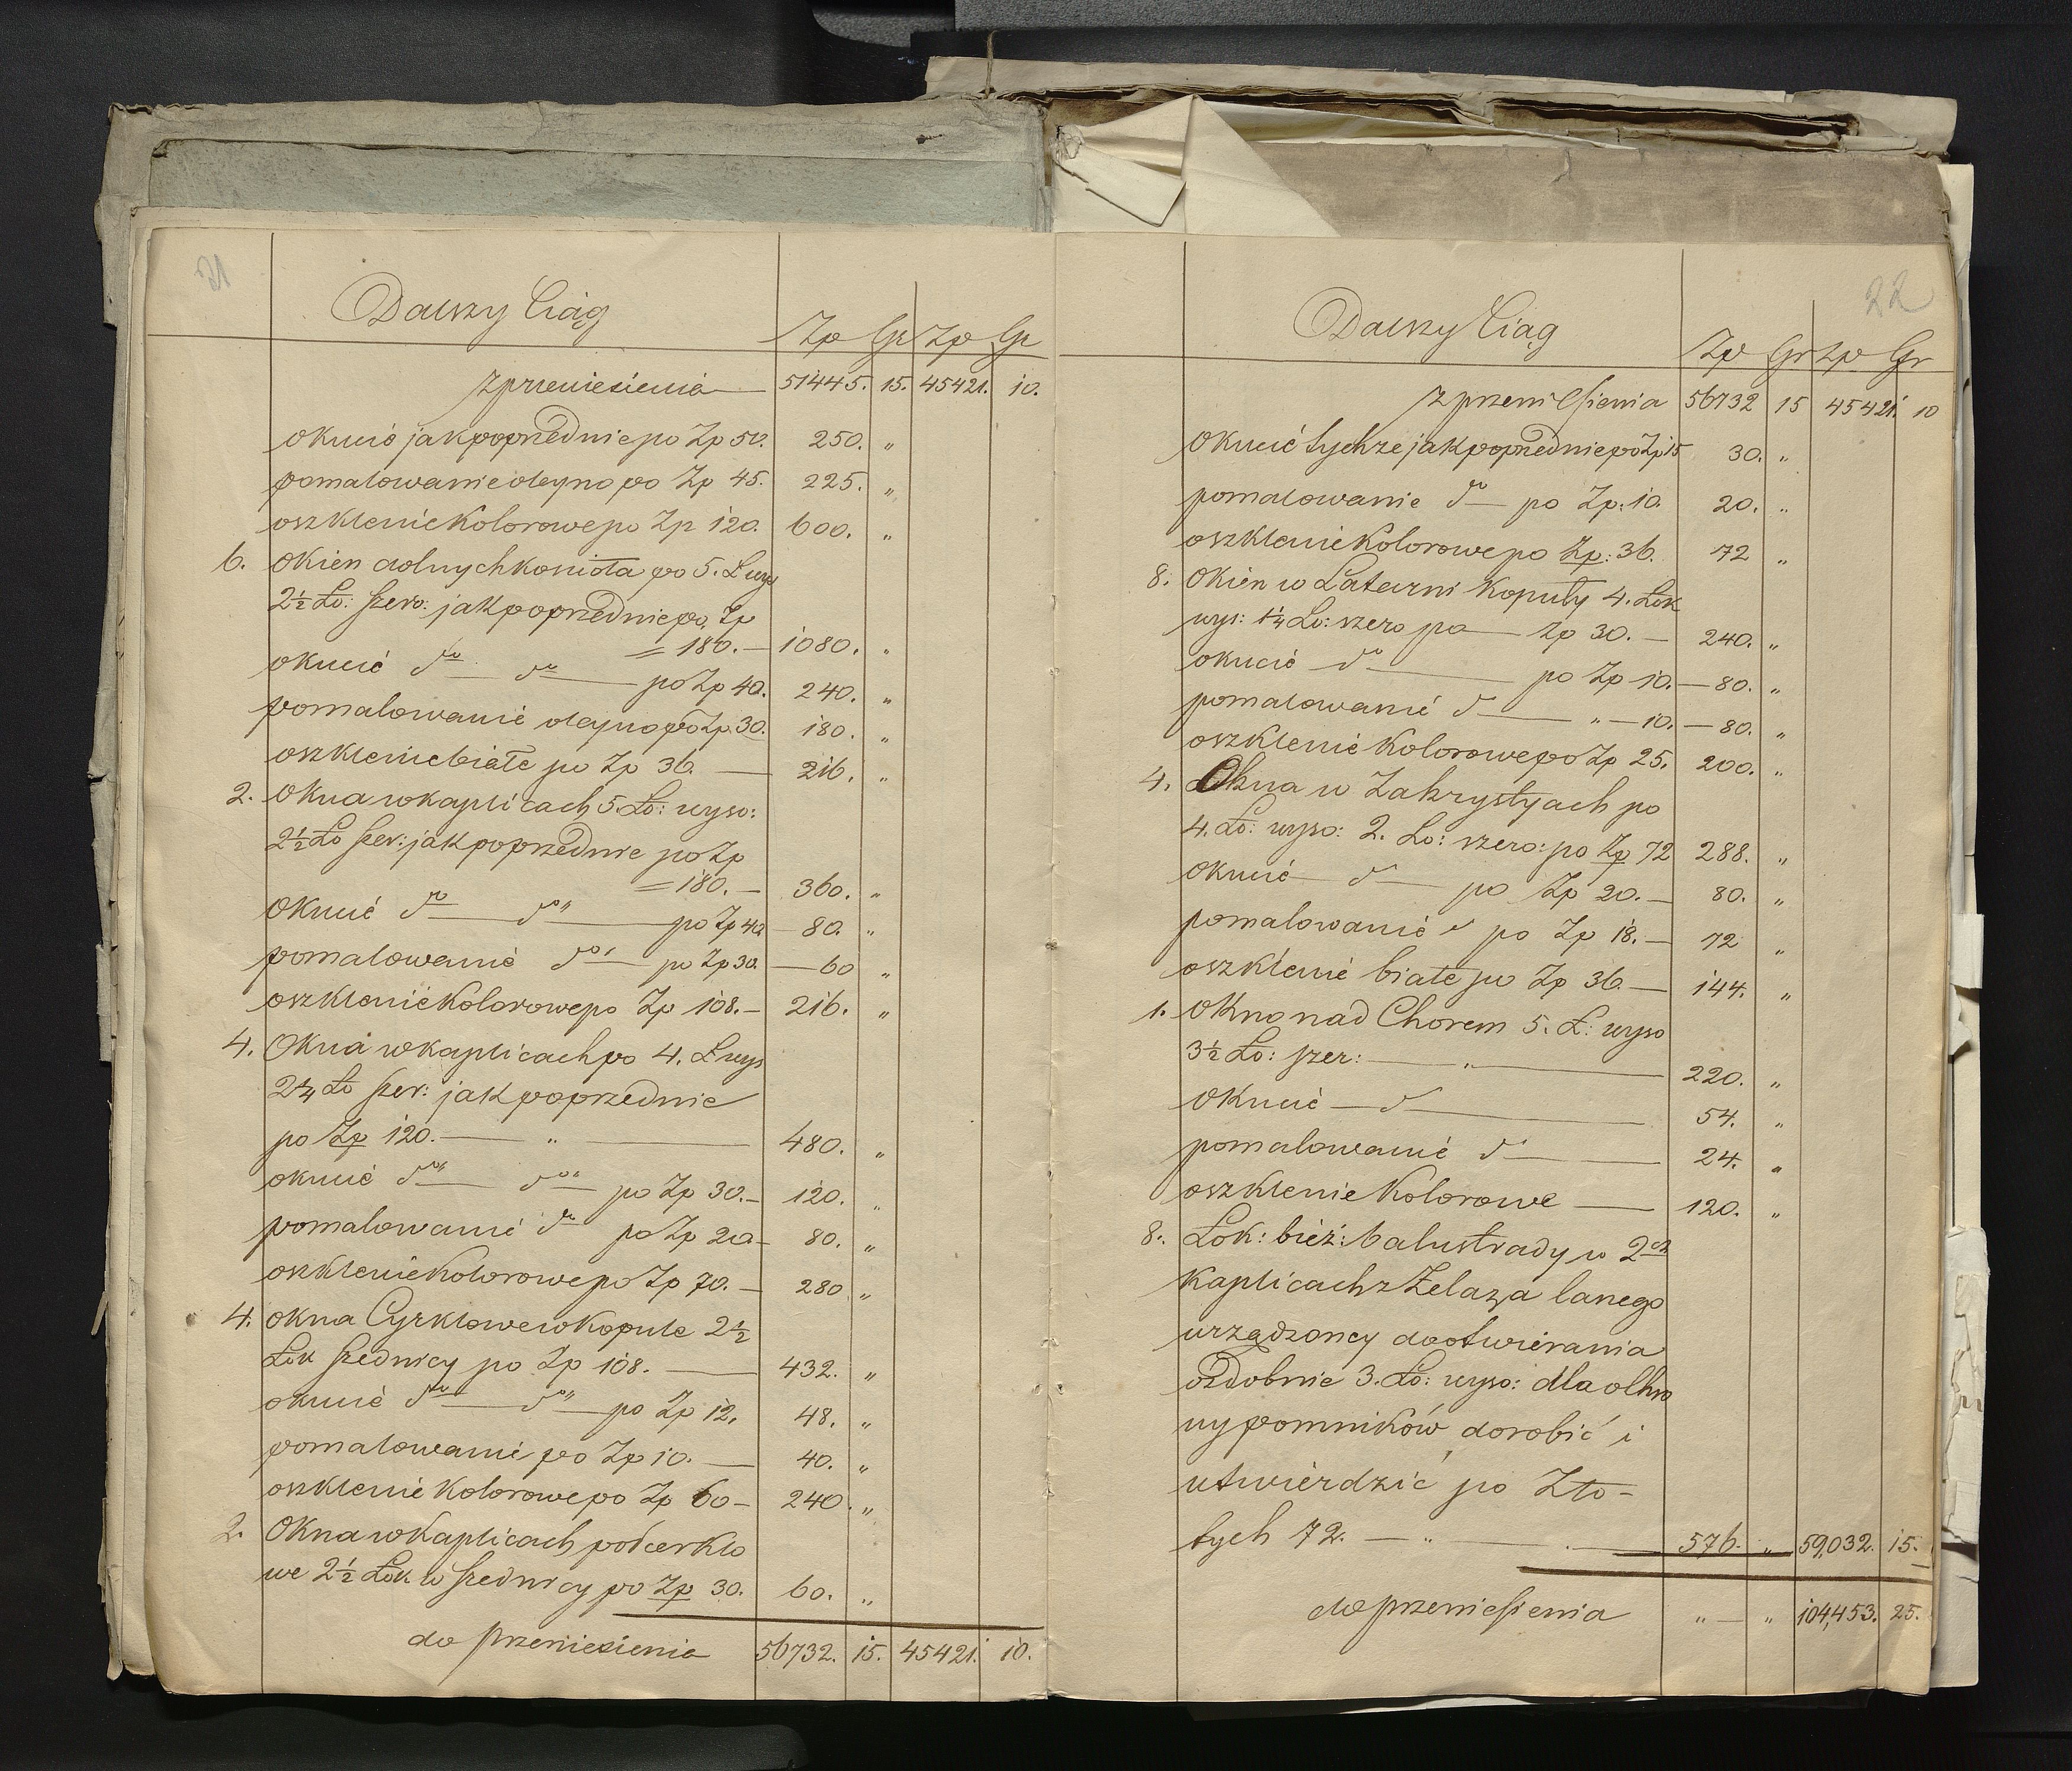 21
Dalszy Ciąg
Zp Gr Zp Gr
z przeniesienia — 51445. 15. 45421. 10.
okucie jak poprzednie po Zp 50. 250. "
pomalowanie olejno po Zp 45. 225. "
oszklenie Kolorowe po Zp 120. 600. "
6. Okien dolnych kościoła po 5. Ł wys
2½ Ło: szero: jak poprzednie po Zp
= 180. — 1080. "
okucie do — do — po Zp 40. 240. "
pomalowanie olejno po Zp. 30. 180. "
oszklenie białe po Zp 36. — 216. "
2. Okna w kaplicach 5. Ło: wyso:
2½ Ło szer: jak poprzednie po Zp
= 180. — 360. "
Okucie do — do" — po Zp 40 — 80. "
pomalowanie do" — po Zp 30. — 60 "
oszklenie Kolorowe po Zp 108. — 216. "
4. Okna w kaplicach po 4. Ł wys
2¼ Ło szer: jak poprzednie
po Zp 120. — " — 480. "
okucie do" — do" — po Zp 30. — 120. "
pomalowanie do po Zp 20 — 80. "
oszklenie Kolorowe po Zp 70. — 280 "
4. okna Cyrklowe w Kopule 2½
Łok szednicy po Zp 108. — 432. "
okucie do — do" — po Zp 12. 48. "
pomalowanie po Zp 10. — 40. "
oszklenie Kolorowe po Zp 60 — 240. "
2. Okna w Kaplicach półcerklo
we 2½ Łok w szednicy po Zp 30. 60. "
do przeniesienia 56732. 15. 45421. 10.
22
Dalszy Ciąg
Zp Gr Zp Gr
z przeniesienia 56732 15 45421. 10
Okucie tychze jak poprzednie po Zp 15 30. "
pomalowanie do — po Zp. 10. 20. "
oszklenie Kolorowe po Zp: 36. 72 "
8. Okien w Latarni Kopuły 4. Łok
wys: 1¼ Ło: szero po — Zp 30. — 240. "
okucie do — po Zp 10. — 80. "
pomalowanie d — " — 10. — 80. "
oszklenie Kolorowe po Zp 25. 200. "
4. Okna w Zakrystyach po
4. Ło: wyso: 2. Ło: szero: po Zp 72 288. "
Okucie — d — po Zp 20. — 80. "
pomalowanie d po Zp 18. — 72 "
oszklenie białe po Zp 36. — 144. "
1. Okno nad Chorem 5. Ł: wyso
3½ Ło: szer: — " — 220. "
Okucie — d — 54. "
pomalowanie d — 24. "
oszklenie Kolorowe — 120. "
8. Łok: bież: balustrady w 2ch
Kaplicach z Żelaza lanego
urządzoney do otwierania
ozdobnie 3. Ło: wyso: dla ochro
ny pomników dorobić i
utwierdzić po Zło-
tych 72. — " — 576. " 59,032. 15.
do przeniesienia " — " 104,453. 25.